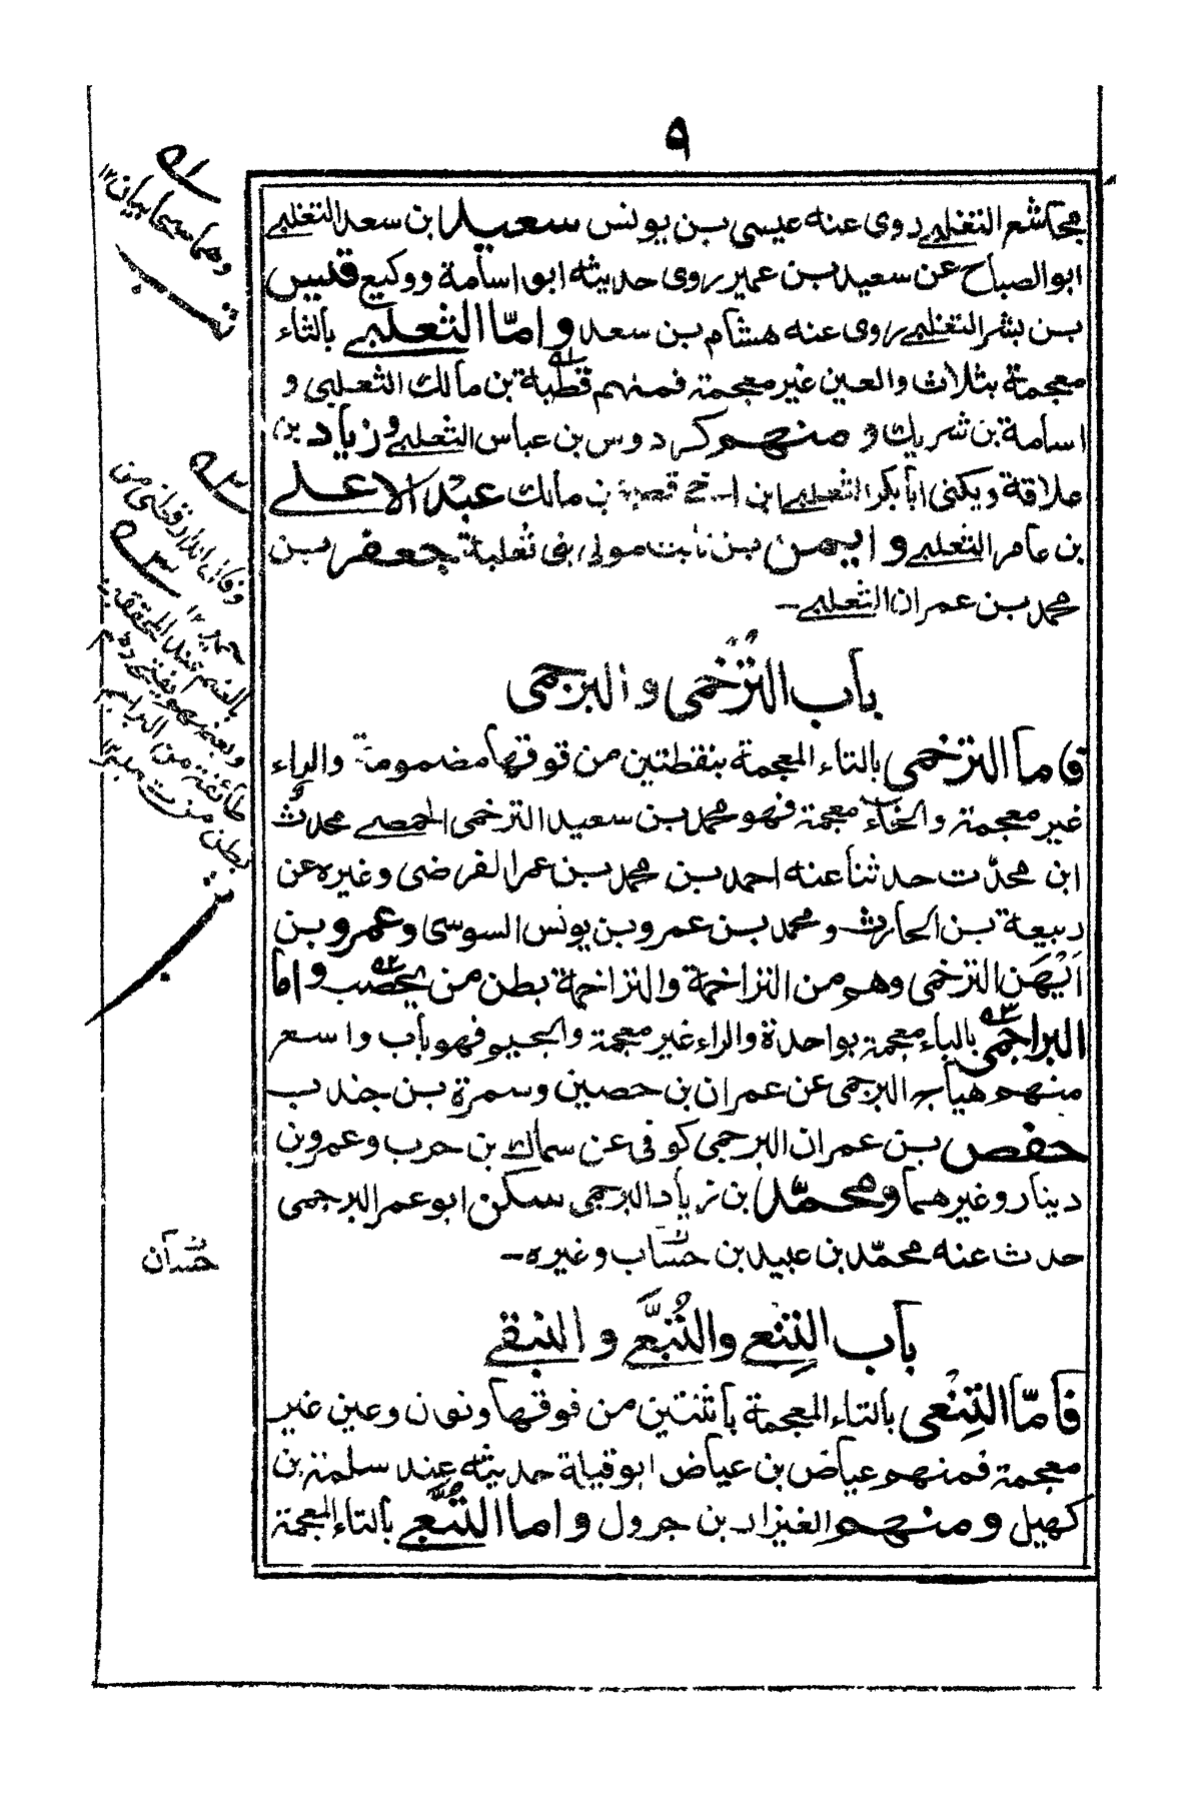 ٩
مجاشع التغلبي روى عنه عيسى بن يونس سعيد ابن سعد التغلبي
ابو الصباح عن سعيد بن عمير روى حديثه ابو اسامة ووكيع قيس
بن بشر التغلبي روى عنه هشام بن سعد واما الثعلبي بالثاء
معجمة بثلاث والعين غير معجمة فمنهم قطبة بن مالك الثعلبي و
اسامة بن شريك و منهم كردوس بن عباس الثعلبي و زياد بن
علاقة ويكنى ابا بكر الثعلبي ابن اخي قطبة بن مالك عبد الاعلى
بن عامر الثعلبي و ايمن بن نابت مولى بنى ثعلبة جعفر بن
محمد بن عمران الثعلبي
باب التُرْخمى و البرجمى
فاما الترخمى بالتاء المعجمة بنقطتين من فوقها مضمومة والراء
غير معجمة والخاء معجمة فهو محمد بن سعيد الترخمى الحمصى محدث
ابن محدّث حدثنا عنه احمد بن محمد بن عمر الفرضى وغيره عن
ربيعة بن الحارث و محمد بن عمرو بن يونس السوسى وعمرو بن
ايهن الترخمى وهو من التراخمة والتراخمة بطن من يحصب و اما
البراجمى بالباء معجمة بواحدة والراء غير معجمة والجيم فهو باب واسع
منهم هياج البرجمى عن عمران بن حصين وسمرة بن جندب
حفص بن عمران البرجمى كوفى عن سماك بن حرب وعمرو بن
دينار وغيرهما ومحمّد بن زياد البرجمى سكن ابو عمر البرجمى
حدث عنه محمّد بن عبيد بن حساب وغيره
باب التِنْعى والتُبَّعى و النبقى
فامّا التِنْعى بالتاء المعجمة باثنتين من فوقها ونون وعين غير
معجمة فمنهم عياض بن عياض ابو قيلة حديثه عند سلمة بن
كهيل ومنهم العيزار بن جرول واما التُبَّعى بالتاء المعجمة
١
وهما صحابيان ١٢
٢
وقال الدارقطنى من
٣
حمير ١٢
بالضم عند المحققين
وبعضهم
طائفة من البراجم
بطن من تميم ١٢
حسان